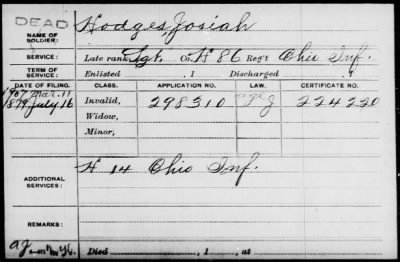 DEAD
NAME OF SOLDIER: Hodges, Josiah
SERVICE: Late rank, Sgt. Co. H 86 Reg't Ohio Inf.
TERM OF SERVICE: Enlisted , 1 Discharged , 1
DATE OF FILING. CLASS. APPLICATION NO. LAW. CERTIFICATE NO.
1907 Mar. 11
1879 July 16 Invalid, 298310 224220
Widow,
Minor,
ADDITIONAL SERVICES: H 14 Ohio Inf.
REMARKS:
Died , 1 , at